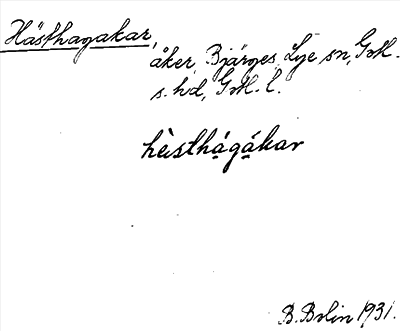 Hästhagakar,
åker, Bjärges, Lye sn, Gotl.
s. hd, Gotl. l.
hèisthágákar
B. Bolin 1931.